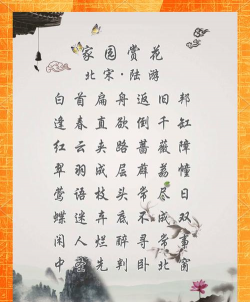 家园赏花
北宋·陆游
白首扁舟返旧邦
逢春直欲倒千缸
红云夹路蔷薇障
翠羽成层薜荔幢
莺语枝头常尽日
蝶迷弃底不成双
闲人烂醉寻常事
中先判卧北窗